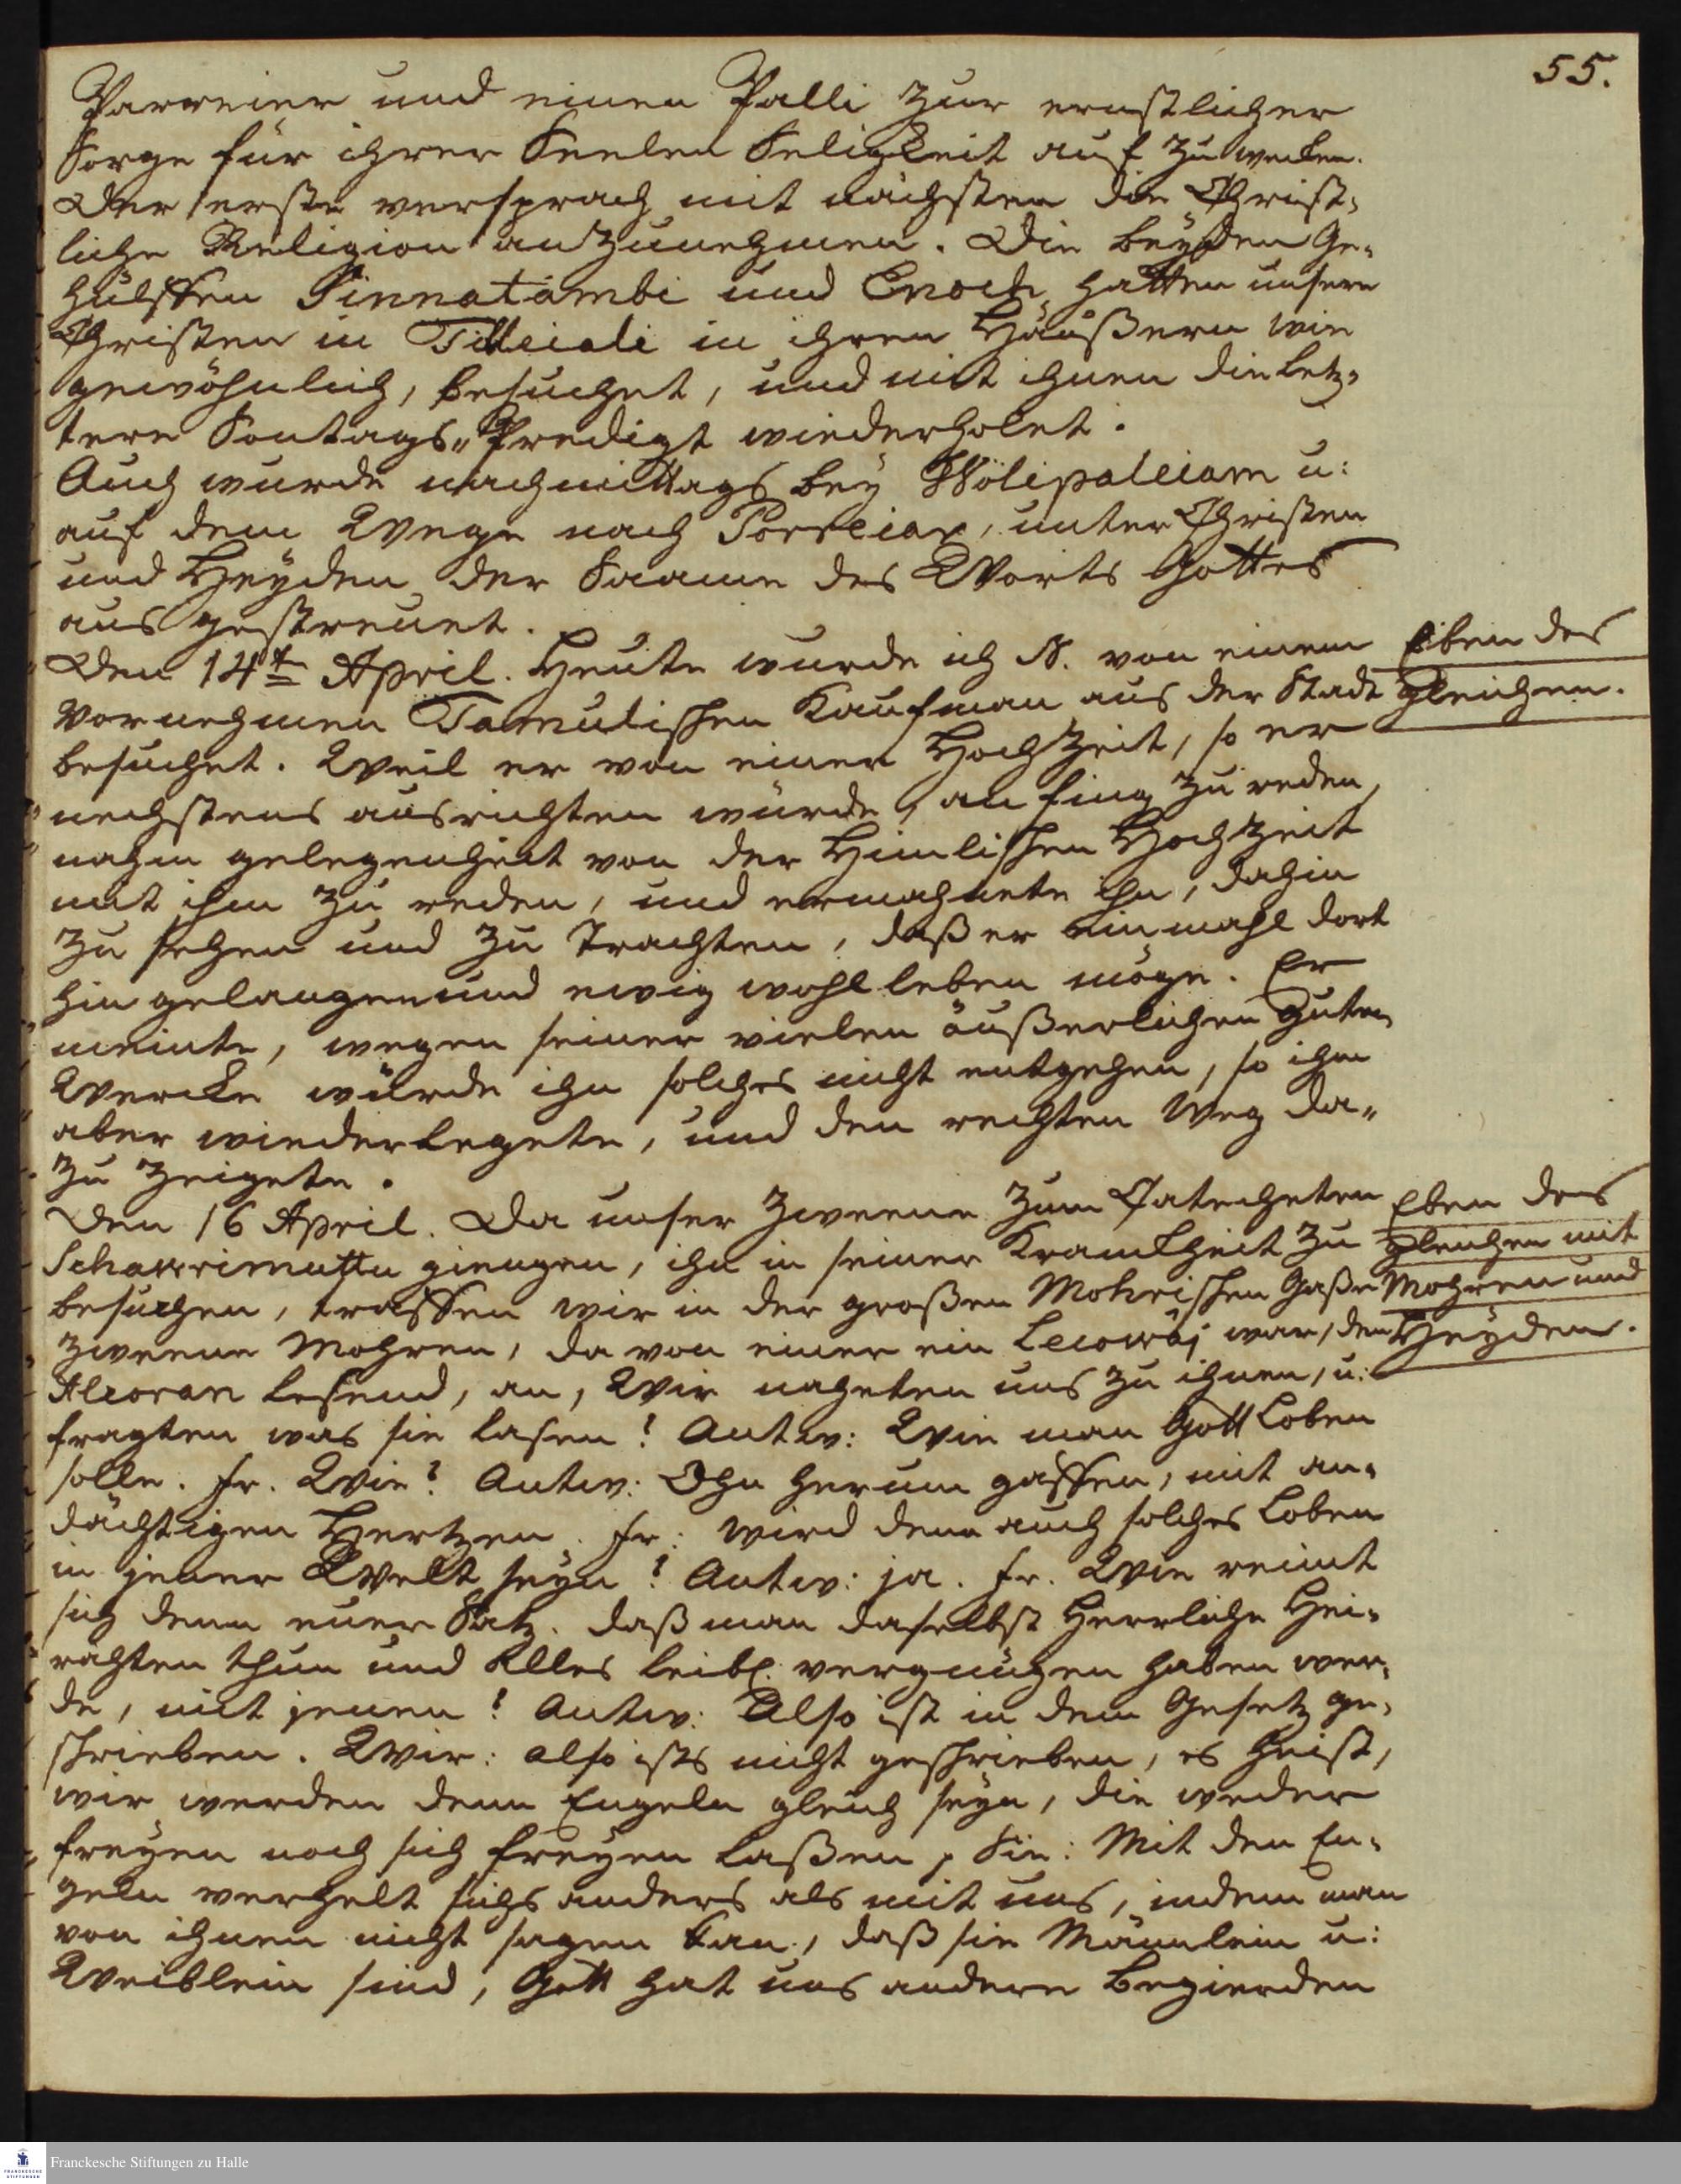 55.
Parreier und einen Palli zur ernstlicher
Sorge für ihrer Seelen Seligkeit auf zu wecken.
Der erste versprach mit nächsten die Christ-
liche Religion anzunehmen. Die beyden Ge-
hülffen Sinnatambi und Enoch hatten unsere
Christen in Tilleiali in ihren Häußern wie
gewöhnlich, besuchet, und mit ihnen die letz-
tere Sontags-Predigt wiederholet.
Auch wurde nachmittags bey Wölipaleiam u:
auf dem Wege nach Porreiar, unter Christen
und Heyden der Saame des Worts Gottes
aus gestreuet.
Den 14t. April. Heute wurde ich N. von einem
vornehmen Tamulischen Kaufman aus der Stadt
besuchet. Weil er von einer Hochzeit, so er
nechstens ausrichten würde, an fing zu reden,
nahm gelegenheit von der Himlischen Hochzeit
mit ihm zu reden, und ermahnete ihn, dahin
zu sehen und zu trachten, daß er einmahl dort
hin gelangen und ewig wohl leben möge. Er
meinte, wegen seiner vielen äußerlichen guten
Wercke würde ihn solches nicht entgehen, so ihm
aber wiederlegete, und den rechten Weg da-
zu zeigete.
Eben des
gleichen.
Den 16 April. Da unser Zweene zum Catecheten
Schawrimuttu giengen, ihn in seiner Kranckheit zu
besuchen, traffen wir in der großen Mohrischen Gaße
zweene Mohren, da von einer ein Lecowäj war, den
Alcoran lesend, an, Wir naheten uns zu ihnen, u:
fragten was sie lasen? Antw: Wie man Gott loben
solle. Fr. Wie? Antw: Ohn herum gaffen, mit an-
dächtigen Hertzen. Fr: Wird denn auch solches Loben
in jener Welt seyn? Antw: ja. Fr. Wie reimt
sich denn euer Satz. daß man daselbst Herrliche Hei-
rahten thun und Alles leibl. vergnügen haben wer-
de, mit jenen? Antw: Also ist in dem Gesetz ge-
schrieben. Wir: also ists nicht geschrieben, es heist,
wir werden denn Engeln gleich seyn, die weder
freyen noch sich freyen laßen, Sie: Mit den En-
geln verhelt sichs anders als mit uns, indem man
von ihnen nicht sagen kan, daß sie Männlein u:
Weiblein sind, Gott hat uns andere Begierden
Eben des
gleichen mit
Mohren und
Heyden.
Franckesche Stiftungen zu Halle